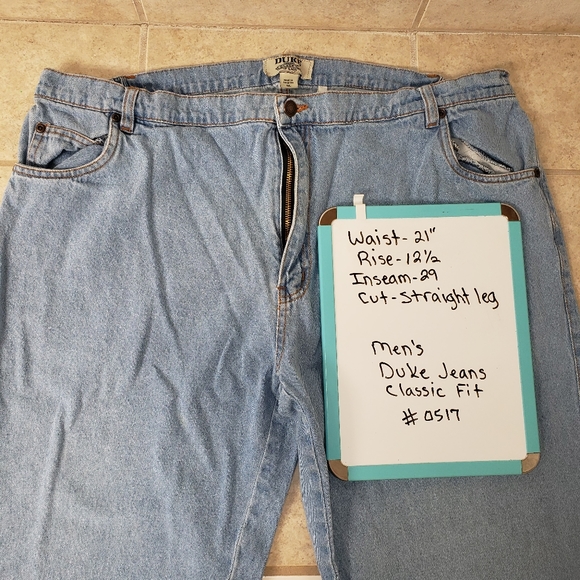 DUKE
Waist-21"
Rise-12½
Inseam-29
Cut-Straight leg
Men's
Duke Jeans
Classic Fit
#0517